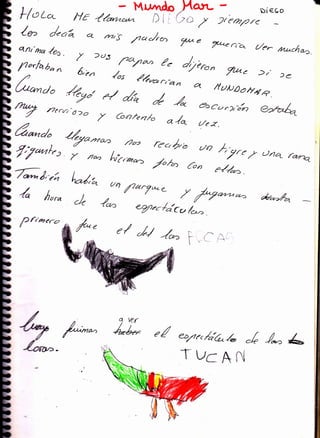 - Mundo Mar -
DIEGO
HOLA ME llaman DIEGO y siempre -
les decía a mis padres que quería ver muchos.
animales. y sus papas le dijeron que si se
portaban bien los llevarían a MUNDOMAR.
Cuando llegó el día de la excursión estaba
muy nervioso y contento a la vez.
Cuando llegamos nos recibio un tigre y una rana
gigantes. y nos hicimos fotos con ellos.
También había un parque y jugamos hasta -
la hora de los espectáculos.
primero fue el de las FOCAS
a ver
luego fuimos haber el espectáculo de los
loros.
TUCAN